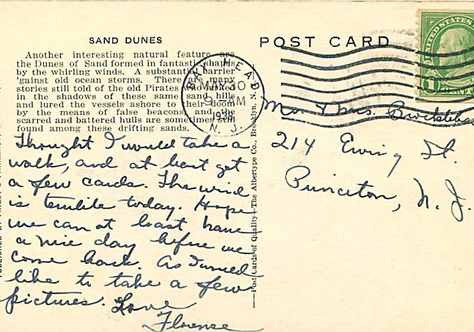 SAND DUNES
Another interesting natural feature are
the Dunes of Sand formed in fantastic shapes
by the whirling winds. A substantial barrier
'gainst old ocean storms. There are many
stories still told of the old Pirates who hid
in the shadows of these same sand hills
and lured the vessels ashore to their doom
by the means of false beacons and the
scarred and battered hulks are sometimes still
found among these drifting sands.
Thought I would take a
walk, and at least get
a few cards. The wind
is terrible today. Hope
we can at least have
a nice day before we
come back. As I would
like to take a few
pictures. Love
Florence
Post Cards of Quality.—The Albertype Co., Brooklyn, N. Y.
POST CARD
HEAD
30
M
N. J.
UNITED STATES
1
Mr. & Mrs.
214 Ewing St.
Princeton, N. J.